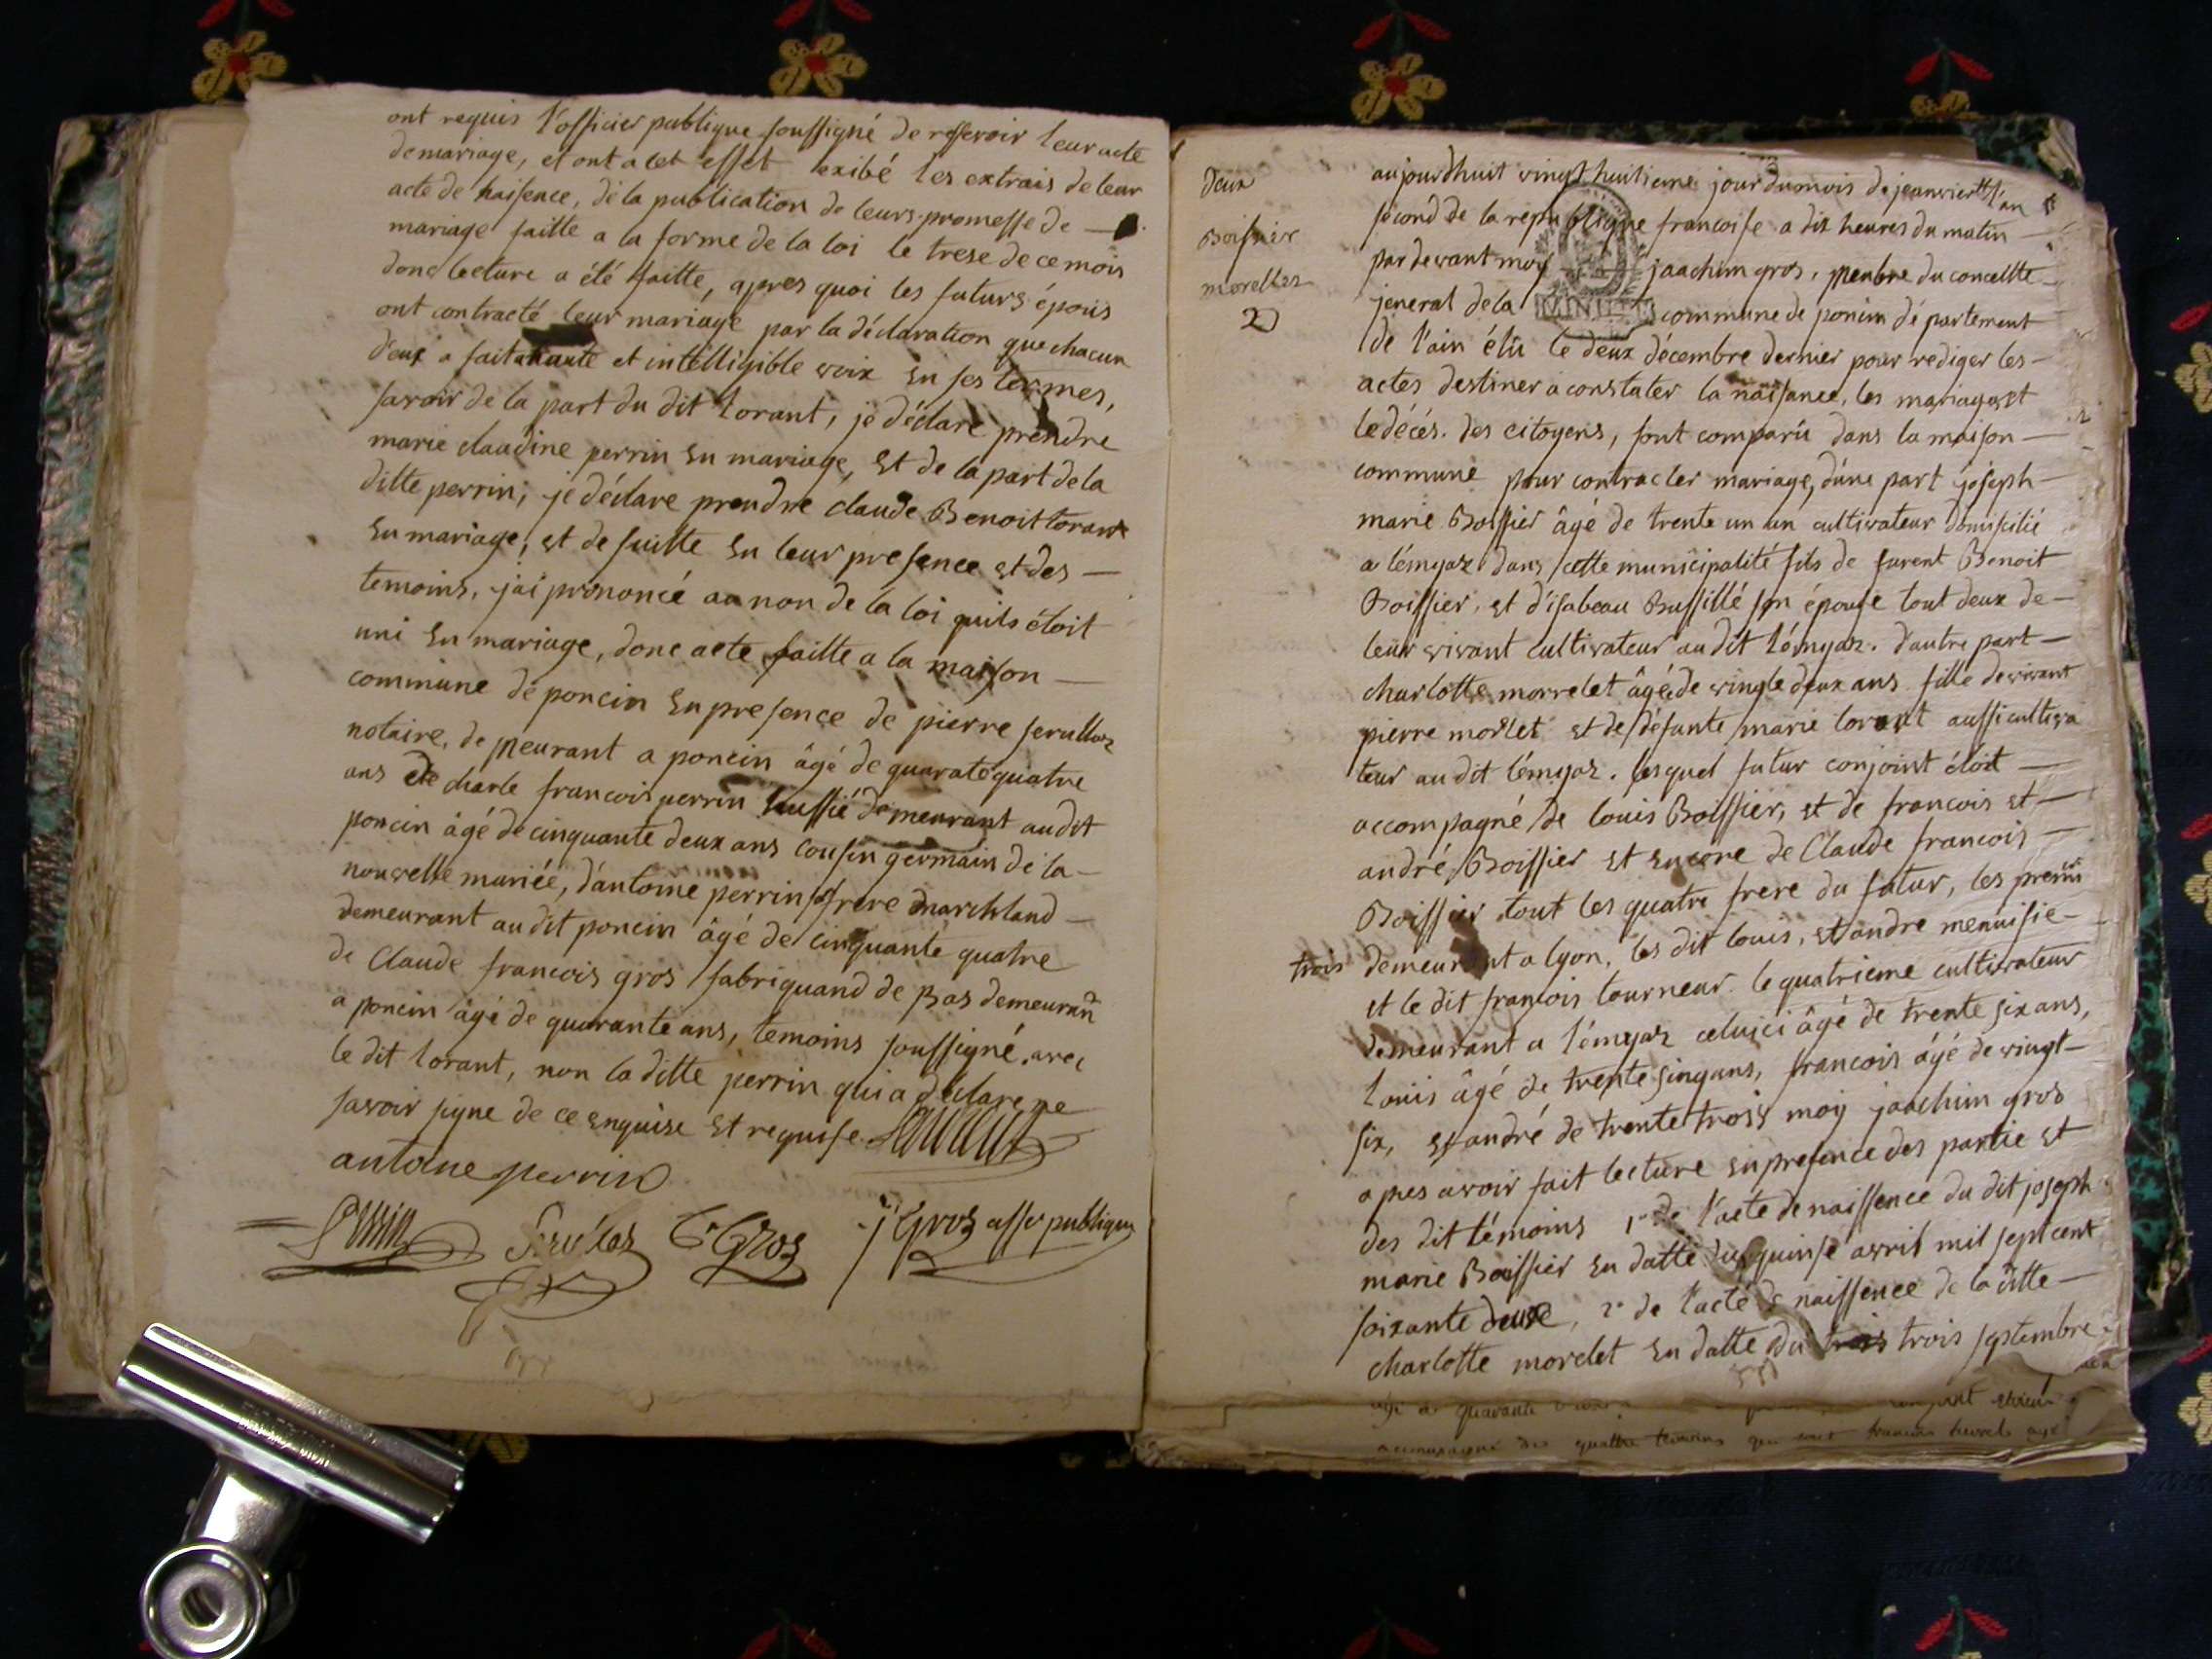 ont requis l'officier publique soussigné de reservoir leur acte
de mariage, et ont a cet effet exibé les extrais de leur
acte de naissence, de la publication de leurs promesse de
mariage faitte a la forme de la loi le trese de ce mois
donc lecture a été faitte, apres quoi les futurs épous
ont contracté leur mariage par la déclaration que chacun
deux a fait a haute et intelligible voix en ses termes,
savoir de la part du dit Lorant, je déclare prendre
marie claudine perrin en mariage, et de la part de la
ditte perrin, je déclare prendre claude Benoit Lorant
en mariage, et de suitte en leur presence et des
temoins, j'ai prononcé au non de la loi quils étoit
uni en mariage, donc acte faitte a la maison
commune de poncin en presence de pierre
notaire, de meurant a poncin âgé de quarate quatre
ans de charle francois perrin huissié demeurant audit
poncin âgé de cinquante deux ans cousin germain de la
nouvelle mariée, d'antoine perrin frere marchand
demeurant au dit poncin âgé de cinquante quatre
de Claude francois gros fabriquand de Bas demeurân
a poncin âgé de quarante ans, temoins soussigné avec
le dit Lorant, non la ditte perrin qui a déclare ne
savoir signe de ce enquise et requise
antoine perrin
Perrin Servélas C. f. Gros j Gros offr publique
deux
Boissier
morellet
2
aujourdhuit vingt huitieme jour du mois de jeanvier l'an
second de la republique francoise a dix heures du matin
par devant moy joachim gros, menbre du conceille
jeneral de la commune de poncin département
MINUTE
de l'ain élû le deux décembre dernier pour rediger les
actes destiner a constater la naissance, les mariages et
le décés des citoyens, sont comparû dans la maison
commune pour contracter mariage, d'une part joseph
marie Boissier âgé de trente un an cultivateur domicilié
a lémyaz dans cette municipalité fils de furent Benoit
Boissier, et d'isabeau Bussillé son épouse tout deux de
leur vivant cultivateur au dit lémyaz. d'autre part
charlotte morrelet âgée de vingte deux ans fille de vivant
pierre morlet et de défunte marie lorant aussi cultiva
teur au dit lémyaz. lesquel futur conjoint étoit
accompagné de louis Boissier, et de francois et
andré Boissier et encore de Claude francois
Boissier tout les quatre frere du futur, les premier
trois demeurant a lyon, les dit louis, et andre menuisie
et le dit françois tourneur. le quatrieme cultivateur
demeurant a lémyaz celuici âgé de trente six ans,
Louis âgé de trente sinq ans, francois âgé de vingt
six, et andré de trente trois moy joachim gros
apres avoir fait lecture en presence des partie et
des dit témoins 1º de l'acte de naissence du dit joseph
marie Boissier en datte du quinse avril mil sept cent
soixante deuse, 2º de l'acte de naissence de la ditte
charlotte morelet en datte du trois trois septembre
quarante
accompagné des quattre temoins qui sont francois agé